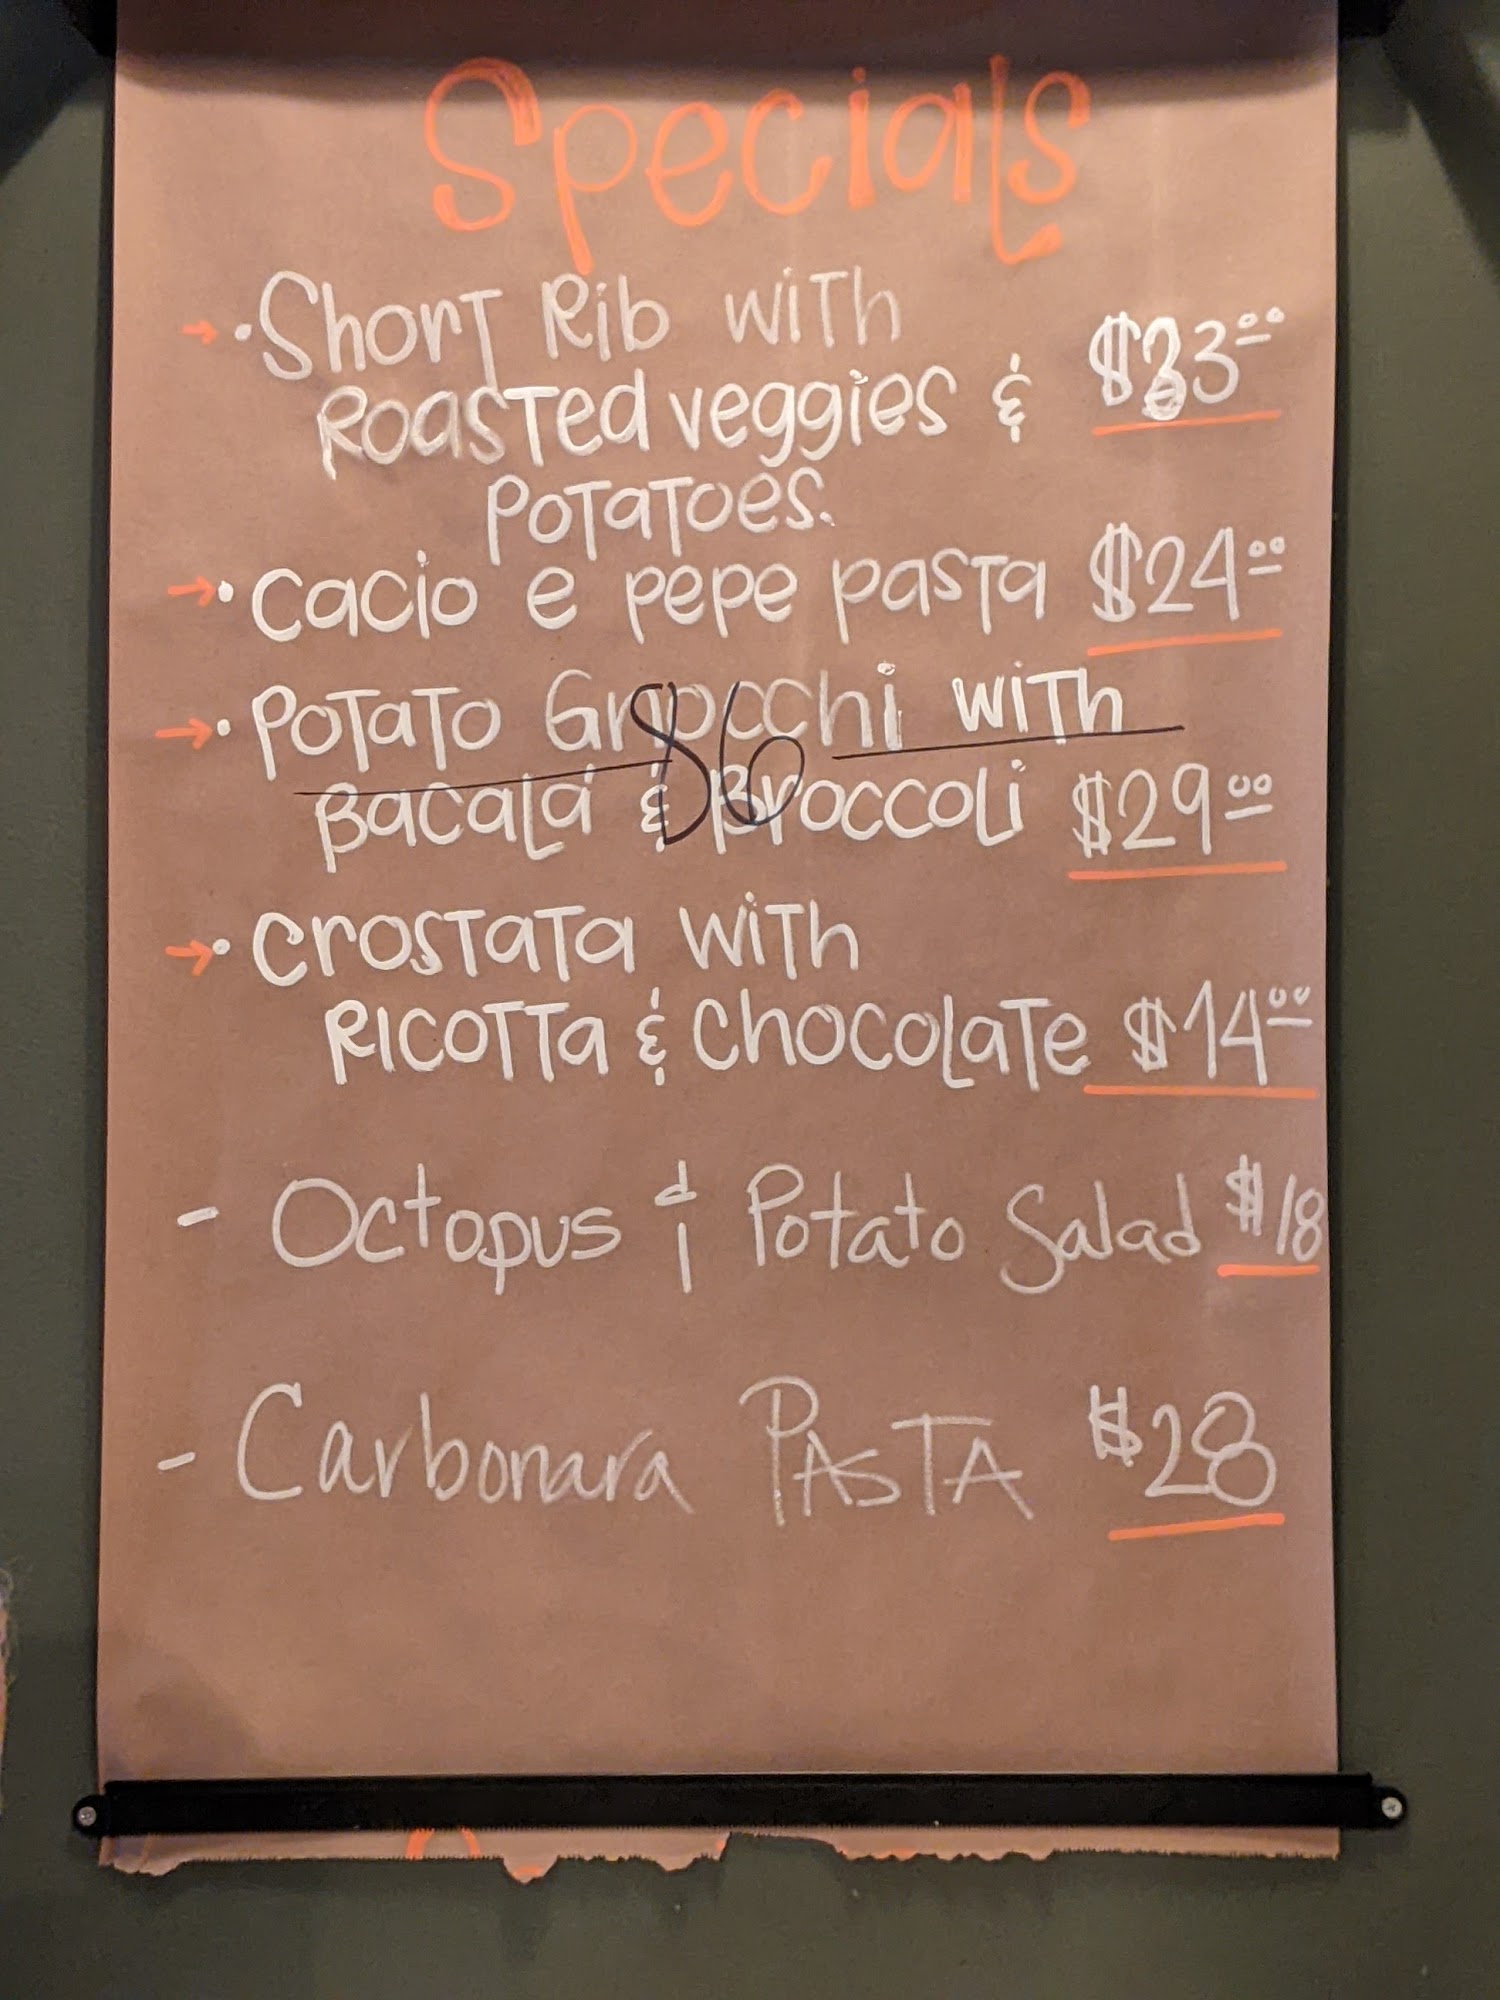 Specials
Short Rib with
Roasted veggies &
potatoes. $33.00
cacio e pepe pasta $24.00
Potato Gnocchi with
86
Bacala & Broccoli $29.00
Crostata with
Ricotta & Chocolate $14.00
- Octopus & Potato Salad $18
- Carbonara PASTA $28